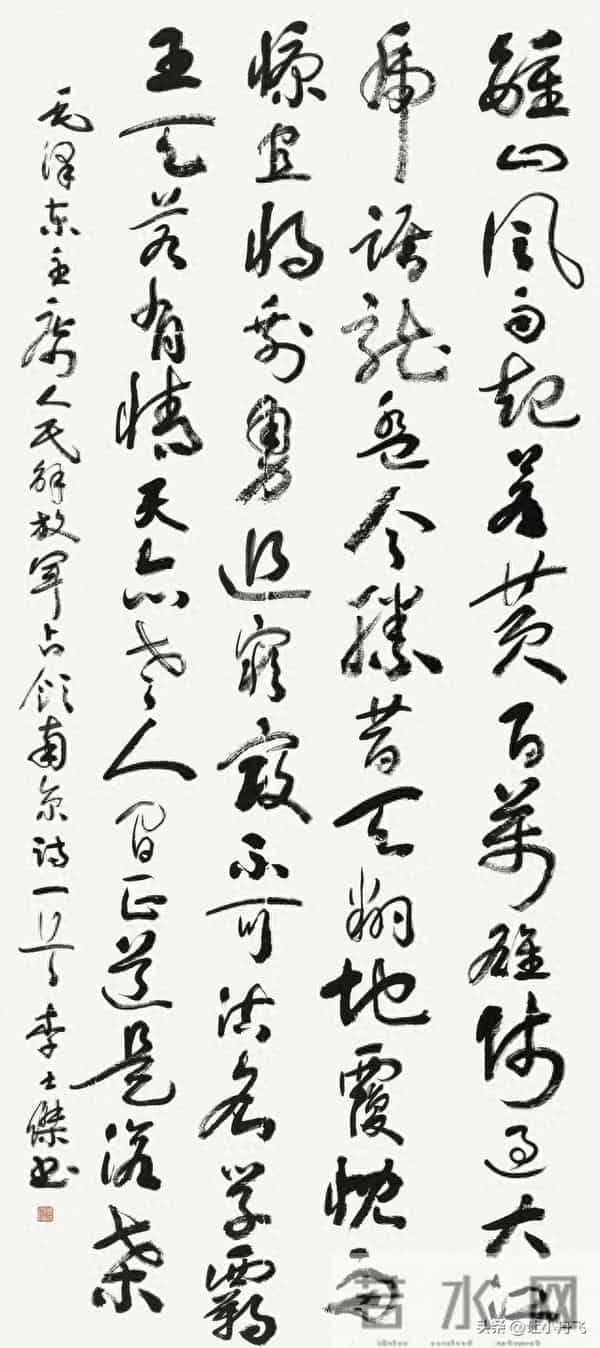 鍾山風雨起蒼黄百萬雄师過大江
虎踞龍盤今勝昔天翻地覆慨而
慷宜將剩勇追窮寇不可沽名學霸
王天若有情天亦老人間正道是滄桑
毛澤东主席人民解放军占領南京诗一首李士傑书
水网
头条 @